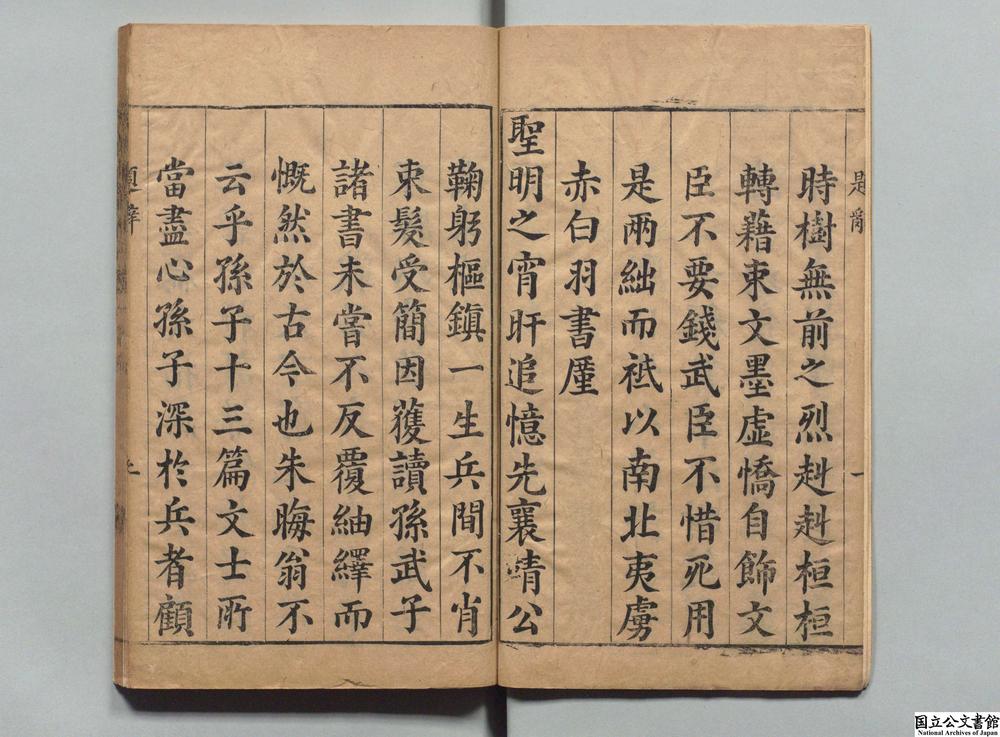 時樹無前之烈赳赳桓桓
轉藉束文墨虛憍自飾文
臣不要錢武臣不惜死用
是兩絀而祗以南北夷虜
赤白羽書廑
聖明之宵旰追憶先襄靖公
鞠躬樞鎮一生兵間不肖
束髮受簡因獲讀孫武子
諸書未嘗不反覆紬繹而
慨然於古今也朱晦翁不
云乎孫子十三篇文士所
當盡心孫子深於兵者顧
題辭
国立公文書館
National Archives of Japan